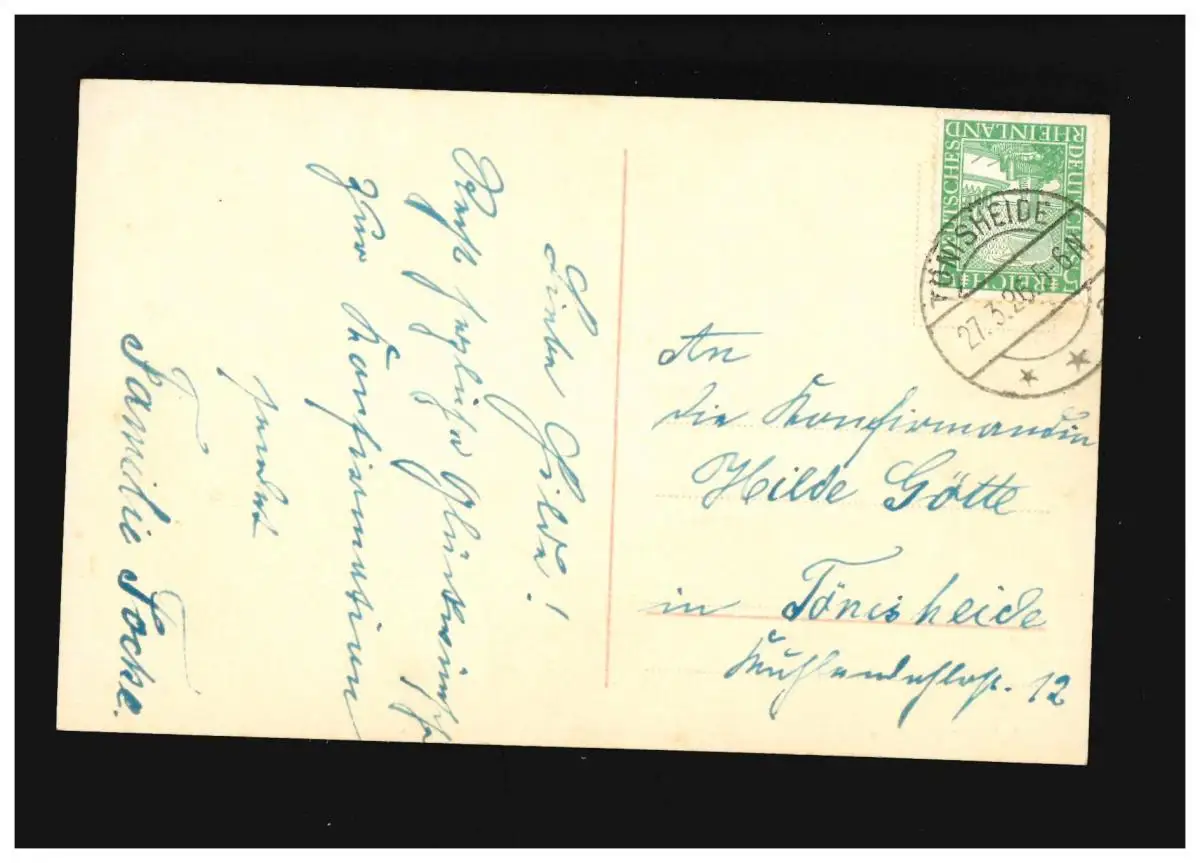 Liebe Hilde!
Recht herzliche Glückwünsche
zur Konfirmation
sendet
Familie Focke.
DEUTSCHES REICH
RHEINLAND
DEUTSCH
5
TÖNISHEIDE
27.3.26.5-6N.
An
die Konfirmandin
Hilde Götte
in Tönisheide
12